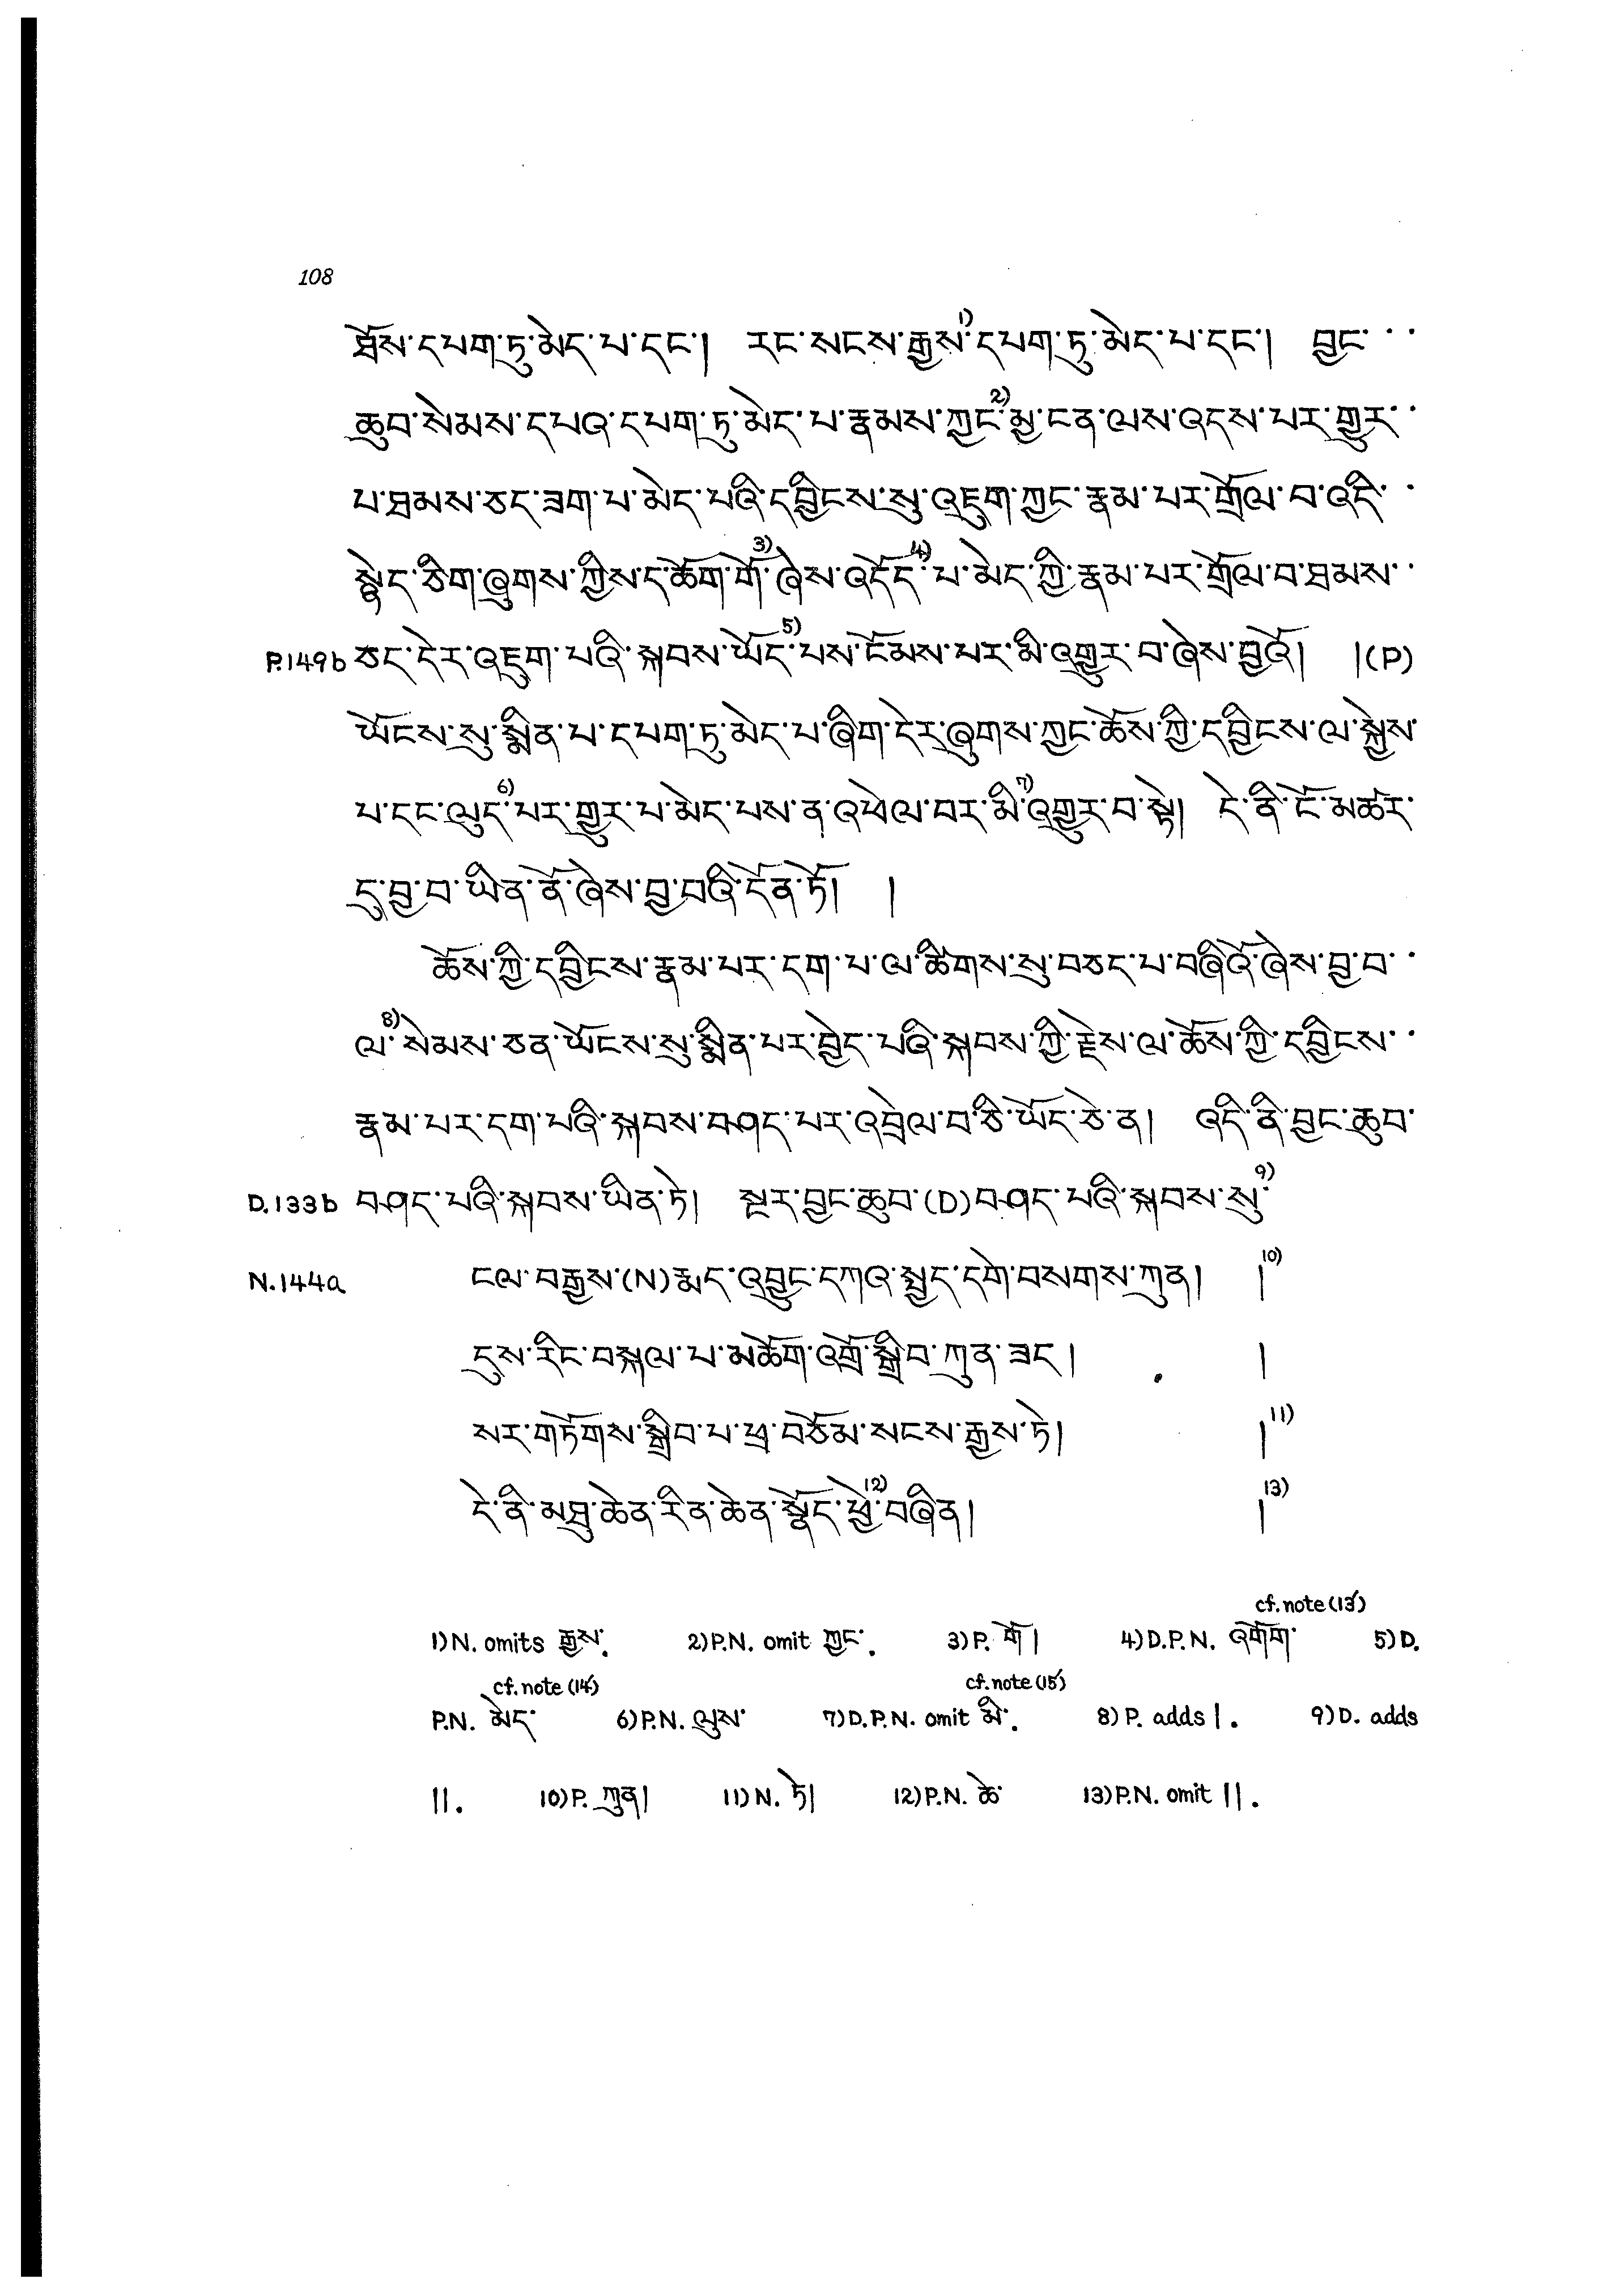 108
ཐོས་དཔག་ཏུ་མེད་པ་དང་། རང་སངས་རྒྱས་1)དཔག་ཏུ་མེད་པ་དང་། བྱང་་་
ཆུབ་སེམས་དཔའ་དཔག་ཏུ་མེད་པ་རྣམས་ཀྱང་2)མྱ་ངན་ལས་འདས་པར་གྱུར་་
པ་ཐམས་ཅད་ཟག་པ་མེད་པའི་དབྱིངས་སུ་འཇུག་ཀྱང་རྣམ་པར་གྲོལ་བ་འདི་་
སྙེད་ཅིག་ཞུགས་ཀྱིས་ད་ཆོག་གོ་3)ཞེས་འདོད་4)པ་མེད་ཀྱི་རྣམ་པར་གྲོལ་བ་ཐམས་་
P.149b ཅད་དེར་འཇུག་པའི་སྐབས་ཡོད་5)པས་ངོམས་པར་མི་འགྱུར་བ་ཞེས་བྱའོ། །(P)
ཡོངས་སུ་སྨིན་པ་དཔག་ཏུ་མེད་པ་ཞིག་དེར་ཞུགས་ཀྱང་ཆོས་ཀྱི་དབྱིངས་ལ་སྐྱེས་
པ་དང་ལུད་6)པར་གྱུར་པ་མེད་པས་ན་འཕེལ་བར་མི་7)འགྱུར་བ་སྟེ། དེ་ནི་ངོ་མཚར་
དུ་བྱ་བ་ཡིན་ནོ་ཞེས་བྱ་བའི་དོན་ཏོ། །
ཆོས་ཀྱི་དབྱིངས་རྣམ་པར་དག་པ་ལ་ཚིགས་སུ་བཅད་པ་བཞིའོ་ཞེས་བྱ་བ་་
ལ་8)སེམས་ཅན་ཡོངས་སུ་སྨིན་པར་བྱེད་པའི་སྐབས་ཀྱི་རྗེས་ལ་ཆོས་ཀྱི་དབྱིངས་་
རྣམ་པར་དག་པའི་སྐབས་བཤད་པར་འབྲེལ་བ་ཅི་ཡོད་ཅེ་ན། འདི་ནི་བྱང་ཆུབ་
D.133b བཤད་པའི་སྐབས་ཡིན་ཏེ། སྔར་བྱང་ཆུབ་(D)བཤད་པའི་སྐབས་སུ་9)
N.144a ངལ་བརྒྱས་(N)རྨད་འབྱུང་དཀའ་སྤྱད་དགེ་བསགས་ཀུན། །10)
དུས་རིང་བསྐལ་པ་མཆོག་འགྲོ་སྒྲིབ་ཀུན་ཟད། །
སར་གཏོགས་སྒྲིབ་པ་ཕྲ་བཅོམ་སངས་རྒྱས་ཏེ། །11)
དེ་ནི་མཐུ་ཆེན་རིན་ཆེན་སྣོད་ཕྱེ་12)བཞིན། །13)
cf.note(13)
1)N. omits རྒྱས་. 2)P.N. omit ཀྱང་. 3)P. གོ། 4)D.P.N. འགོག་ 5)D.
cf.note(14) cf.note(15)
P.N. མེད་ 6)P.N. ལུས་ 7)D.P.N. omit མི་. 8)P. adds །. 9)D. adds
།།. 10)P. ཀུན། 11)N. ཏེ། 12)P.N. ཆེ་ 13)P.N. omit །།.